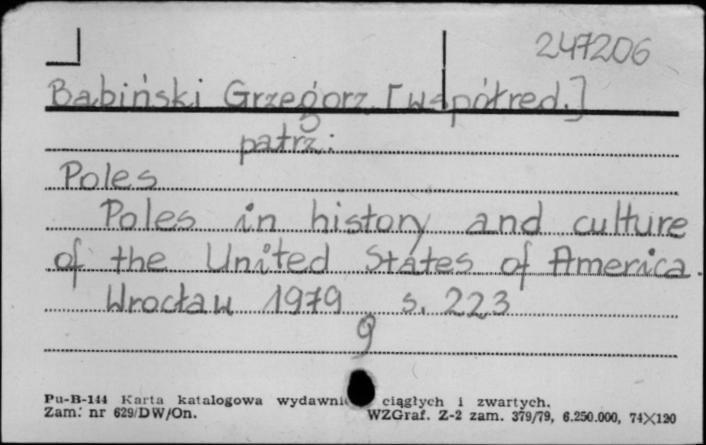 247206
Babiński Grzegorz [współred.]
patrz:
Poles
Poles in history and culture
of the United States of America.
Wrocław 1979 s. 223
9
Pu-B-144 Karta katalogowa wydawni ciągłych i zwartych.
Zam. nr 629/DW/On. WZGraf. Z-2 zam. 379/79, 6.250.000, 74X120